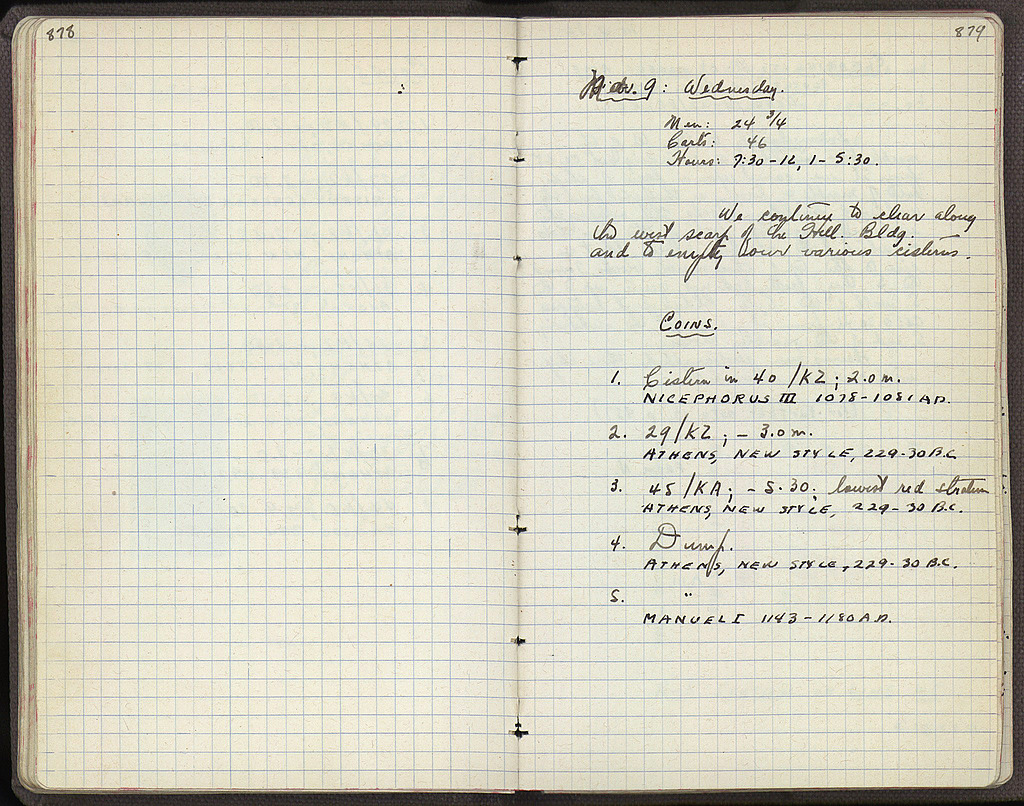 878
879
Nov. 9: Wednesday.
Men: 24 3/4
Carts: 46
Hours: 7:30-12, 1-5:30.
We continue to clear along
the west scarp of the Hell. Bldg.
and to empty our various cisterns.
Coins.
1. Cistern in 40/KZ; 2.0 m.
NICEPHORUS III 1078-1081 A.D.
2. 29/KZ; - 3.0 m.
ATHENS, NEW STYLE, 229-30 B.C.
3. 45/KA; - 5.30; lowest red stratum
ATHENS, NEW STYLE, 229-30 B.C.
4. Dump.
ATHENS, NEW STYLE, 229-30 B.C.
5. "
MANUEL I 1143-1180 A.D.